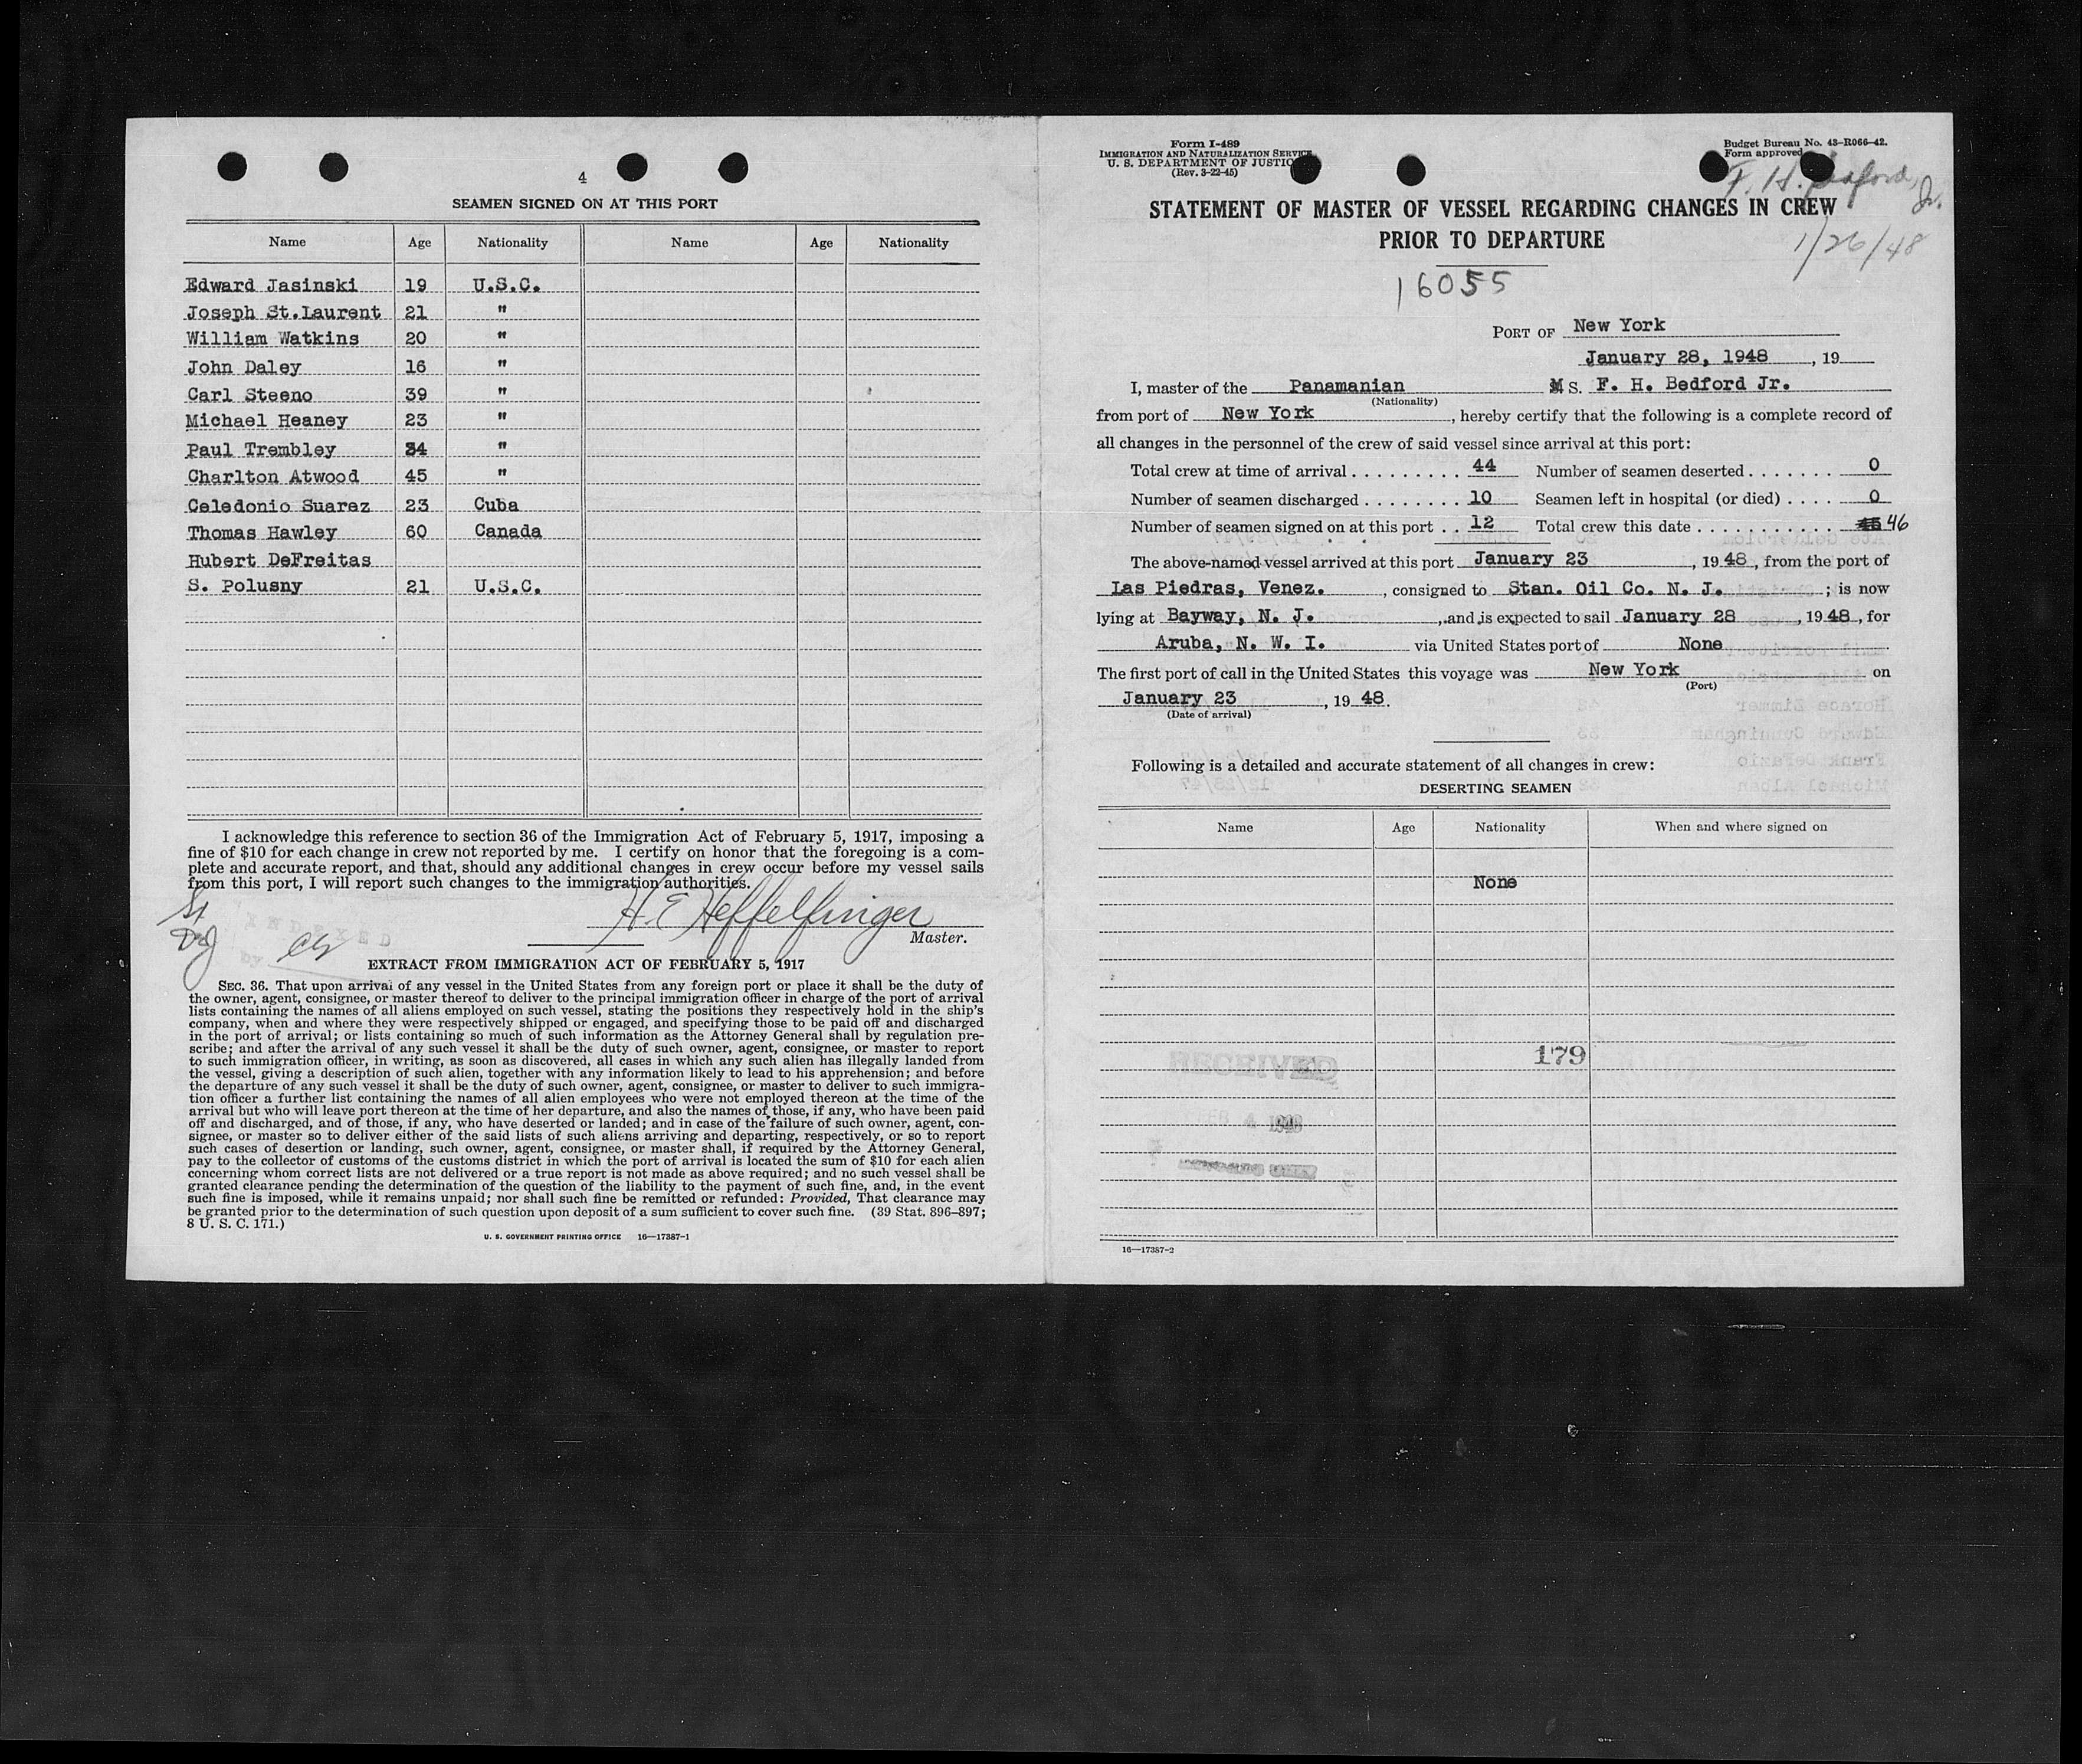 4
SEAMEN SIGNED ON AT THIS PORT
Name Age Nationality Name Age Nationality
Edward Jasinski 19 U.S.C.
Joseph St.Laurent 21 "
William Watkins 20 "
John Daley 16 "
Carl Steeno 39 "
Michael Heaney 23 "
Paul Trembley 34 "
Charlton Atwood 45 "
Celedonio Suarez 23 Cuba
Thomas Hawley 60 Canada
Hubert DeFreitas
S. Polusny 21 U.S.C.
I acknowledge this reference to section 36 of the Immigration Act of February 5, 1917, imposing a
fine of $10 for each change in crew not reported by me. I certify on honor that the foregoing is a com-
plete and accurate report, and that, should any additional changes in crew occur before my vessel sails
from this port, I will report such changes to the immigration authorities.
H. E Heffelfinger
Master.
INDEXED
by
EXTRACT FROM IMMIGRATION ACT OF FEBRUARY 5, 1917
SEC. 36. That upon arrival of any vessel in the United States from any foreign port or place it shall be the duty of
the owner, agent, consignee, or master thereof to deliver to the principal immigration officer in charge of the port of arrival
lists containing the names of all aliens employed on such vessel, stating the positions they respectively hold in the ship's
company, when and where they were respectively shipped or engaged, and specifying those to be paid off and discharged
in the port of arrival; or lists containing so much of such information as the Attorney General shall by regulation pre-
scribe; and after the arrival of any such vessel it shall be the duty of such owner, agent, consignee, or master to report
to such immigration officer, in writing, as soon as discovered, all cases in which any such alien has illegally landed from
the vessel, giving a description of such alien, together with any information likely to lead to his apprehension; and before
the departure of any such vessel it shall be the duty of such owner, agent, consignee, or master to deliver to such immigra-
tion officer a further list containing the names of all alien employees who were not employed thereon at the time of the
arrival but who will leave port thereon at the time of her departure, and also the names of those, if any, who have been paid
off and discharged, and of those, if any, who have deserted or landed; and in case of the failure of such owner, agent, con-
signee, or master so to deliver either of the said lists of such aliens arriving and departing, respectively, or so to report
such cases of desertion or landing, such owner, agent, consignee, or master shall, if required by the Attorney General,
pay to the collector of customs of the customs district in which the port of arrival is located the sum of $10 for each alien
concerning whom correct lists are not delivered or a true report is not made as above required; and no such vessel shall be
granted clearance pending the determination of the question of the liability to the payment of such fine, and, in the event
such fine is imposed, while it remains unpaid; nor shall such fine be remitted or refunded: Provided, That clearance may
be granted prior to the determination of such question upon deposit of a sum sufficient to cover such fine. (39 Stat. 896–897;
8 U. S. C. 171.)
U. S. GOVERNMENT PRINTING OFFICE 16—17387-1
Form I-489
IMMIGRATION AND NATURALIZATION SERVICE
U. S. DEPARTMENT OF JUSTIC
(Rev. 3-22-45)
Budget Bureau No. 43-R066-42.
Form approved
F. H. Bedford, Jr.
1/26/48
STATEMENT OF MASTER OF VESSEL REGARDING CHANGES IN CREW
PRIOR TO DEPARTURE
16055
PORT OF New York
January 28, 1948, 19
I, master of the Panamanian M S. F. H. Bedford Jr.
(Nationality)
from port of New York, hereby certify that the following is a complete record of
all changes in the personnel of the crew of said vessel since arrival at this port:
Total crew at time of arrival . . . . . . . . . 44 Number of seamen deserted . . . . . . . 0
Number of seamen discharged . . . . . . . . 10 Seamen left in hospital (or died) . . . . 0
Number of seamen signed on at this port . . 12 Total crew this date . . . . . . . . . . . 45 46
The above-named vessel arrived at this port January 23, 1948, from the port of
Las Piedras, Venez., consigned to Stan. Oil Co. N. J.; is now
lying at Bayway, N. J., and is expected to sail January 28, 1948, for
Aruba, N. W. I. via United States port of None
The first port of call in the United States this voyage was New York on
(Port)
January 23, 19 48.
(Date of arrival)
Following is a detailed and accurate statement of all changes in crew:
DESERTING SEAMEN
Name Age Nationality When and where signed on
None
179
RECEIVED
FEB 4 1948
16—17387-2